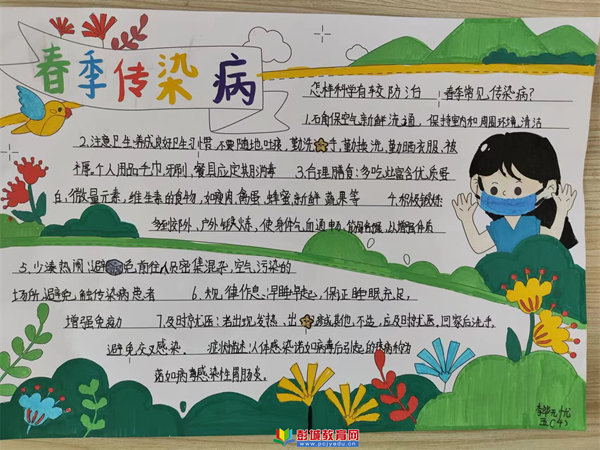 春季传染病
怎样科学有效防治 春季常见传染病?
1.确保空气新鲜流通,保持室内和周围环境清洁
2.注意卫生:养成良好卫生习惯,不要随地吐痰,勤洗手,勤换洗,勤晒衣服,被
褥,个人用品毛巾,牙刷,餐具应定期消毒 3.合理膳食:多吃些富含优质蛋
白,微量元素,维生素的食物,如瘦肉,禽蛋,蜂蜜,新鲜蔬果等 4.积极锻炼
多到郊外,户外锻炼,使身体气血通畅,筋骨舒展,从增强体质
5.少凑热闹,避免前往人员密集混杂,空气污染的
场所,避免触传染病患者 6.规律作息:早睡早起,保证睡眠充足,
增强免疫力 7.及时就医:若出现发热,出或其他不适,应及时就医,回家后洗手,
避免交叉感染. 症状描述:人体感染诺如病毒后引起的疾病称为
诺如病毒感染性胃肠炎.
五(4)
彭城教育网
www.pcjyedu.cn